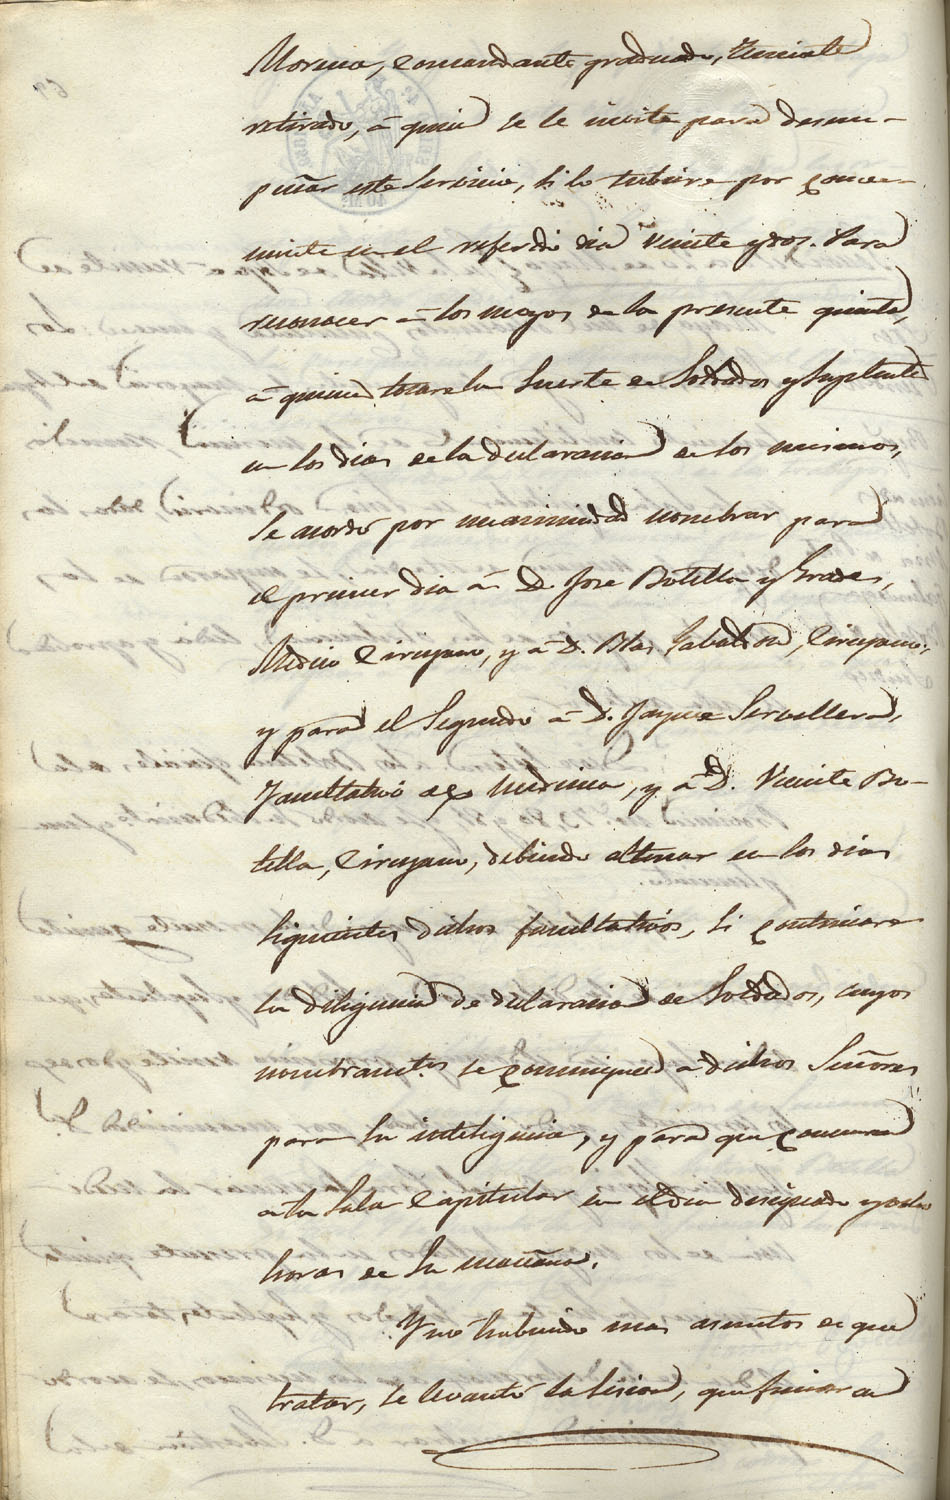 Morena, Comandante graduado, Teniente
retirado, á quien se le invite para desem-
peñar este Servicio, si lo tubiere por conve-
niente en el referido dia veinte y dos. Para
reconocer á los mozos de la presente quinta,
á quienes tocare la suerte de Soldados y Suplentes
en los dias de la declaracion de los mismos,
se acordó por unanimidad nombrar para
el primer dia á D. Jose Botella y
Medico Cirujano, y á D. Blas Sabater, Cirujano;
y para el Segundo á D. Jayme Servellera,
Facultativo de Medicina, y á D. Vicente Bo-
tella, Cirujano, debiendo alternar en los dias
siguientes dichos facultativos, si continuare
la diligencia de declaracion de Soldados, cuyos
nombramtos. se comuniquen á dichos Señores
para su inteligencia, y para que concurran
a la Sala Capitular en el dia designado y ocho
horas de su mañana.
Y no habiendo mas asuntos de que
tratar, se levantó la Sesion, que firmaron